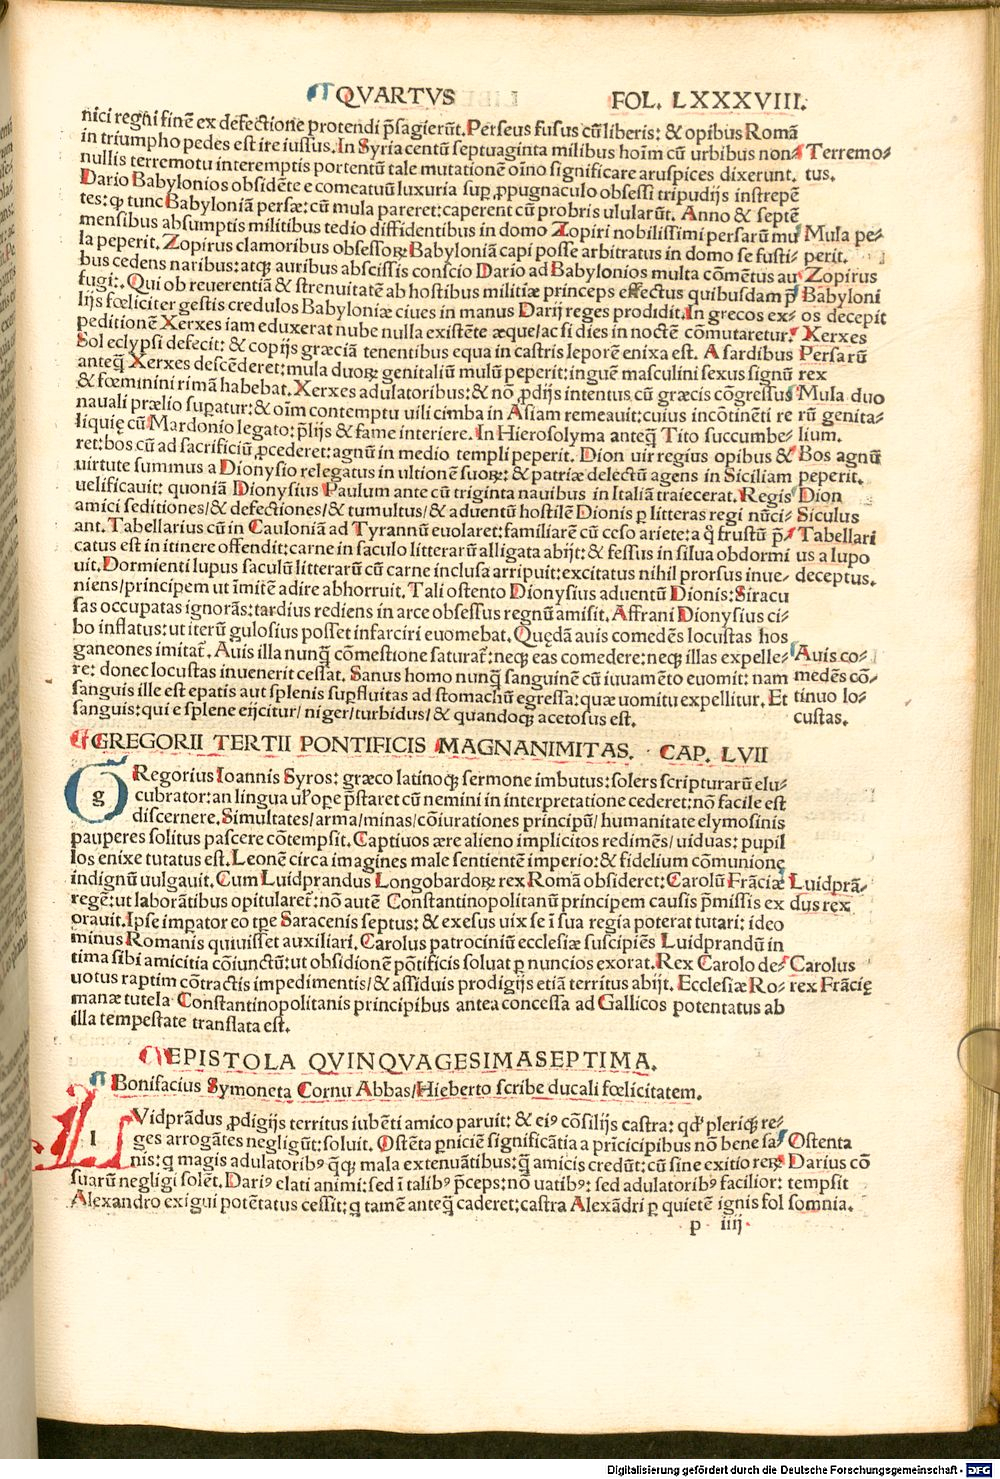 QVARTVS FOL. LXXXVIII.
nici regni finē ex defectione protendi p̄sagierūt. Perseus fusus cū liberis: & opibus Romā
in triumpho pedes est ire iussus. In Syria centū septuaginta milibus hoīm cū urbibus non⸗
nullis terremotu interemptis portentū tale mutationē oīno significare aruspices dixerunt.
Dario Babylonios obsidēte e comeatuū luxuria sup ꝓpugnaculo obsessi tripudijs instrepē
tes: ꝙ tunc Babyloniā persæ: cū mula pareret: caperent cū probris ulularūt. Anno & septē
mensibus absumptis militibus tedio diffidentibus in domo Zopiri nobilissimi persarū mu
la peperit. Zopirus clamoribus obsessoꝝ Babyloniā capi posse arbitratus in domo se fusti⸗
bus cedens naribus: atqꝫ auribus abscissis conscio Dario ad Babylonios multa cōmētus au
fugit. Qui ob reuerentiā & strenuitatē ab hostibus militiæ princeps effectus quibusdam p̄
lijs fœliciter gestis credulos Babyloniæ ciues in manus Darij reges prodidit. In grecos ex⸗
peditionē Xerxes iam eduxerat nube nulla existēte æque/ac si dies in noctē cōmutaretur.
Sol eclypsi defecit: & copijs græciā tenentibus equa in castris leporē enixa est. A sardibus
anteꝗ̄ Xerxes descēderet: mula duoꝝ genitaliū mulū peperit: inguē masculini sexus signū
& fœminini rimā habebat. Xerxes adulatoribus: & nō ꝓdijs intentus cū græcis cōgressus
nauali prælio supatur: & oīm contemptu uili cimba in Asiam remeauit: cuius incōtinēti re
liquię cū Mardonio legato: p̄lijs & fame interiere. In Hierosolyma anteꝗ̄ Tito succumbe⸗
ret: bos cū ad sacrificiū ꝓcederet: agnū in medio templi peperit. Dion uir regius opibus &
uirtute summus a Dionysio relegatus in ultionē suoꝝ: & patriæ delectū agens in Siciliam
uelificauit: quoniā Dionysius Paulum ante cū triginta nauibus in Italiā traiecerat. Regis
amici seditiones/& defectiones/& tumultus/& aduentū hostilē Dionis ꝑ litteras regi nūci⸗
ant. Tabellarius cū in Cauloniā ad Tyrannū euolaret: familiarē cū ceso ariete: a ꝗ̄ frustū p̄⸗
catus est in itinere offendit: carne in saculo litterarū alligata abijt: & fessus in silua obdormi
uit. Dormienti lupus saculū litterarū cū carne inclusa arripuit: excitatus nihil prorsus inue⸗
niens/principem ut īmitē adire abhorruit. Tali ostento Dionysius aduentū Dionis: Siracu
sas occupatas ignorās: tardius rediens in arce obsessus regnū amisit. Affrani Dionysius ci⸗
bo inflatus: ut iterū gulosius posset infarciri euomebat. Quędā auis comedēs locustas hos
ganeones imitat̄. Auis illa nunꝗ̄ cōmestione saturat̄: neqꝫ eas comedere: neqꝫ illas expelle⸗
re: donec locustas inuenerit cessat. Sanus homo nunꝗ̄ sanguinē cū iuuamēto euomit: nam
sanguis ille est epatis aut splenis supfluitas ad stomachū egressa: quæ uomitu expellitur. Et
sanguis: qui e splene eijcitur/niger/turbidus/& quandoqꝫ acetosus est.
Terremo⸗
tus.
Mula pe⸗
perit.
Zopirus
Babyloni
os decepit
Xerxes
Persarū
rex
Mula duo
rū genita⸗
lium.
Bos agnū
peperit.
Dion
Siculus
Tabellari
us a lupo
deceptus.
Auis co⸗
medēs cō⸗
tinuo lo⸗
custas.
GREGORII TERTII PONTIFICIS MAGNANIMITAS. CAP. LVII
g Regorius Ioannis Syros: græco latinoqꝫ sermone imbutus: solers scripturarū elu⸗
cubrator: an lingua uł ope p̄staret cū nemini in interpretatione cederet: nō facile est
discernere. Simultates/arma/minas/cōiurationes principū/humanitate elymosinis
pauperes solitus pascere cōtempsit. Captiuos ære alieno implicitos redimēs/uiduas: pupil
los enixe tutatus est. Leonē circa imagines male sentientē imperio: & fidelium cōmunione
indignū uulgauit. Cum Luidprandus Longobardoꝝ rex Romā obsideret: Carolū Frāciæ
regē: ut laborātibus opitularet̄: nō autē Constantinopolitanū principem causis p̄missis ex
orauit. Ipse impator eo tpe Saracenis septus: & exesus uix se ī sua regia poterat tutari: ideo
minus Romanis quiuisset auxiliari. Carolus patrociniū ecclesiæ suscipiēs Luidprandū in
tima sibi amicitia cōiunctū: ut obsidionē pōtificis soluat ꝑ nuncios exorat. Rex Carolo de⸗
uotus raptim cōtractis impedimentis/& assiduis prodigijs etiā territus abijt. Ecclesiæ Ro⸗
manæ tutela Constantinopolitanis principibus antea concessa ad Gallicos potentatus ab
illa tempestate translata est.
Luidprā⸗
dus rex
Carolus
rex Frācię
EPISTOLA QVINQVAGESIMASEPTIMA.
Bonifacius Symoneta Cornu Abbas/Hieberto scribe ducali fœlicitatem.
l Vidprādus ꝓdigijs territus iubēti amico paruit: & eiꝰ cōsilijs castra: qđ pleriqꝫ re⸗
ges arrogātes negligūt: soluit. Ostēta pniciē significātia a prīcicipibus nō bene sa⸗
nis: ꝗ magis adulatoribꝰ ꝗ̄qꝫ mala extenuātibus: ꝗ̄ amicis credūt: cū sine exitio reꝝ
suarū negligi solēt. Dariꝰ elati animi: sed ī talibꝰ p̄ceps: nō uatibꝰ: sed adulatoribꝰ facilior:
Alexandro exigui potētatus cessit: ꝗ tamē anteꝗ̄ caderet: castra Alexādri ꝑ quietē ignis fol
Ostenta
Darius cō
tempsit
somnia.
p iiij
Digitalisierung gefördert durch die Deutsche Forschungsgemeinschaft - DFG